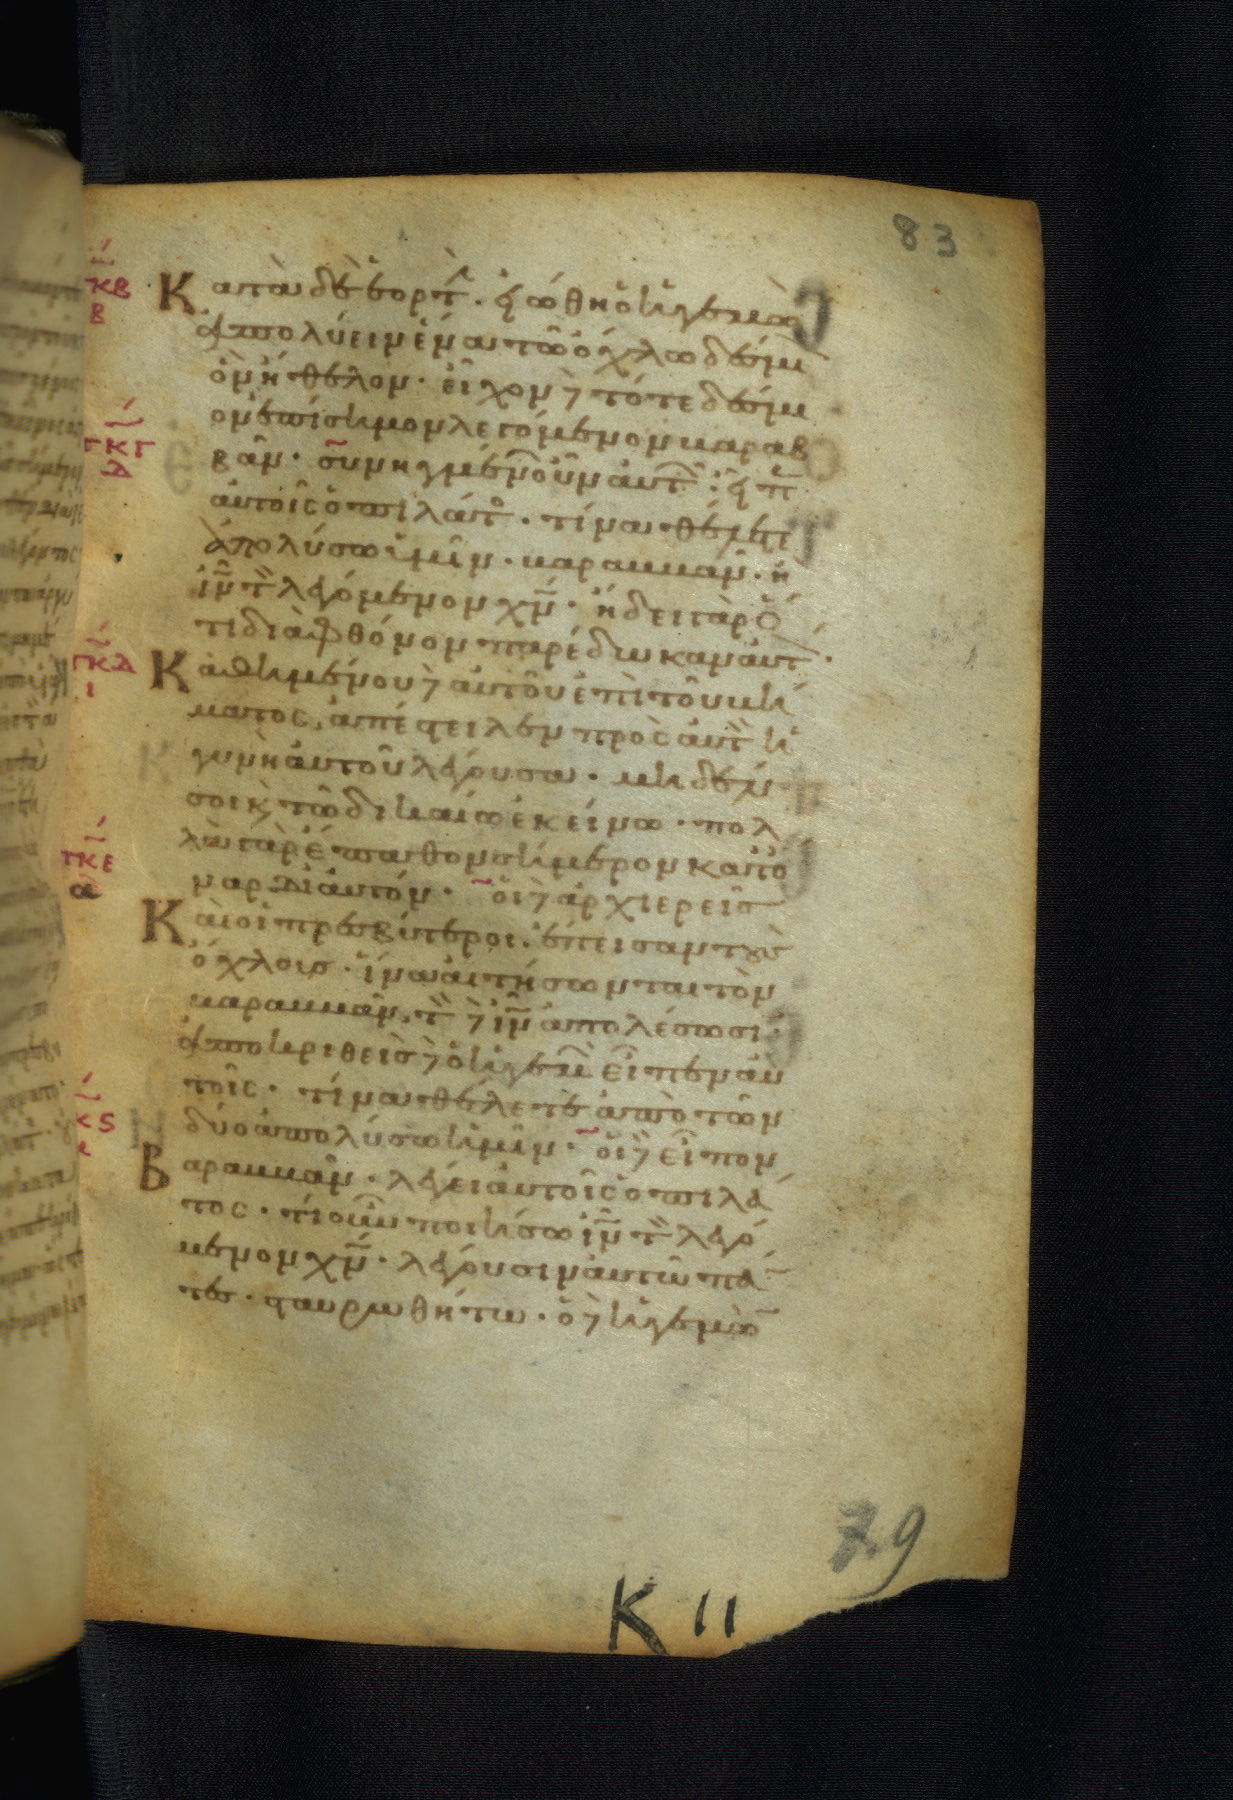 83
Κατὰ δὲ ἑορτ(ὴν). εἰώθει ὁ ἡγεμὼ(ν)
ἀπολύειν ἕνα τῶ ὄχλω δέσμι
ὃν ἤθελον. εἶχον δὲ τότε δέσμι
ον ἐπίσημον λεγόμενον βαραβ
βᾶν. συνηγμένων οὖν αὐτῶν: εἶπεν
αὐτοῖς ὁ πιλάτος. τίνα θέλετε
ἀπολύσω ὑμῖν. βαραββᾶν. ἢ
ἰν τὸν λεγόμενον χν. ἤδει γὰρ ὅ
τι διὰ φθόνον παρέδωκαν αὐτ(όν).
Καθημένου δὲ αὐτοῦ ἐπὶ τοῦ βή
ματος, ἀπέστειλεν πρὸς αὐτὸν ἡ
γυνὴ αὐτοῦ λέγουσα. μηδὲν
σοι κ(αὶ) τῶ δικαίω ἐκείνω. πολ
λὰ γὰρ ἔπαθον σήμερον κατ᾽ ὄ
ναρ δι᾽ αὐτόν. οἱ δὲ ἀρχιερεῖς
Καὶ οἱ πρεσβύτεροι. ἔπεισαν τοὺς
ὄχλους. ἵνα αἰτήσωνται τὸν
βαραββᾶν. τὸν δὲ ἰν ἀπολέσωσι.
ἀποκριθεὶς δὲ ὁ ἡγεμὼν εἶπεν αὐ
τοῖς. τίνα θέλετε ἀπὸ τῶν
δύο ἀπολύσω ὑμῖν. οἱ δὲ εἶπον
Βαραββᾶν. λέγει αὐτοῖς ὁ πιλά
τος. τί οὖν ποιήσω ἰν τὸν λεγό
μενον χν. λέγουσιν αὐτῶ πά(ν)
τες. σταυρωθήτω. ὁ δὲ ἡγεμὼ(ν)
τκβ
β
τκγ
δ
τκδ
ι
τκε
α
κς
79
K 11